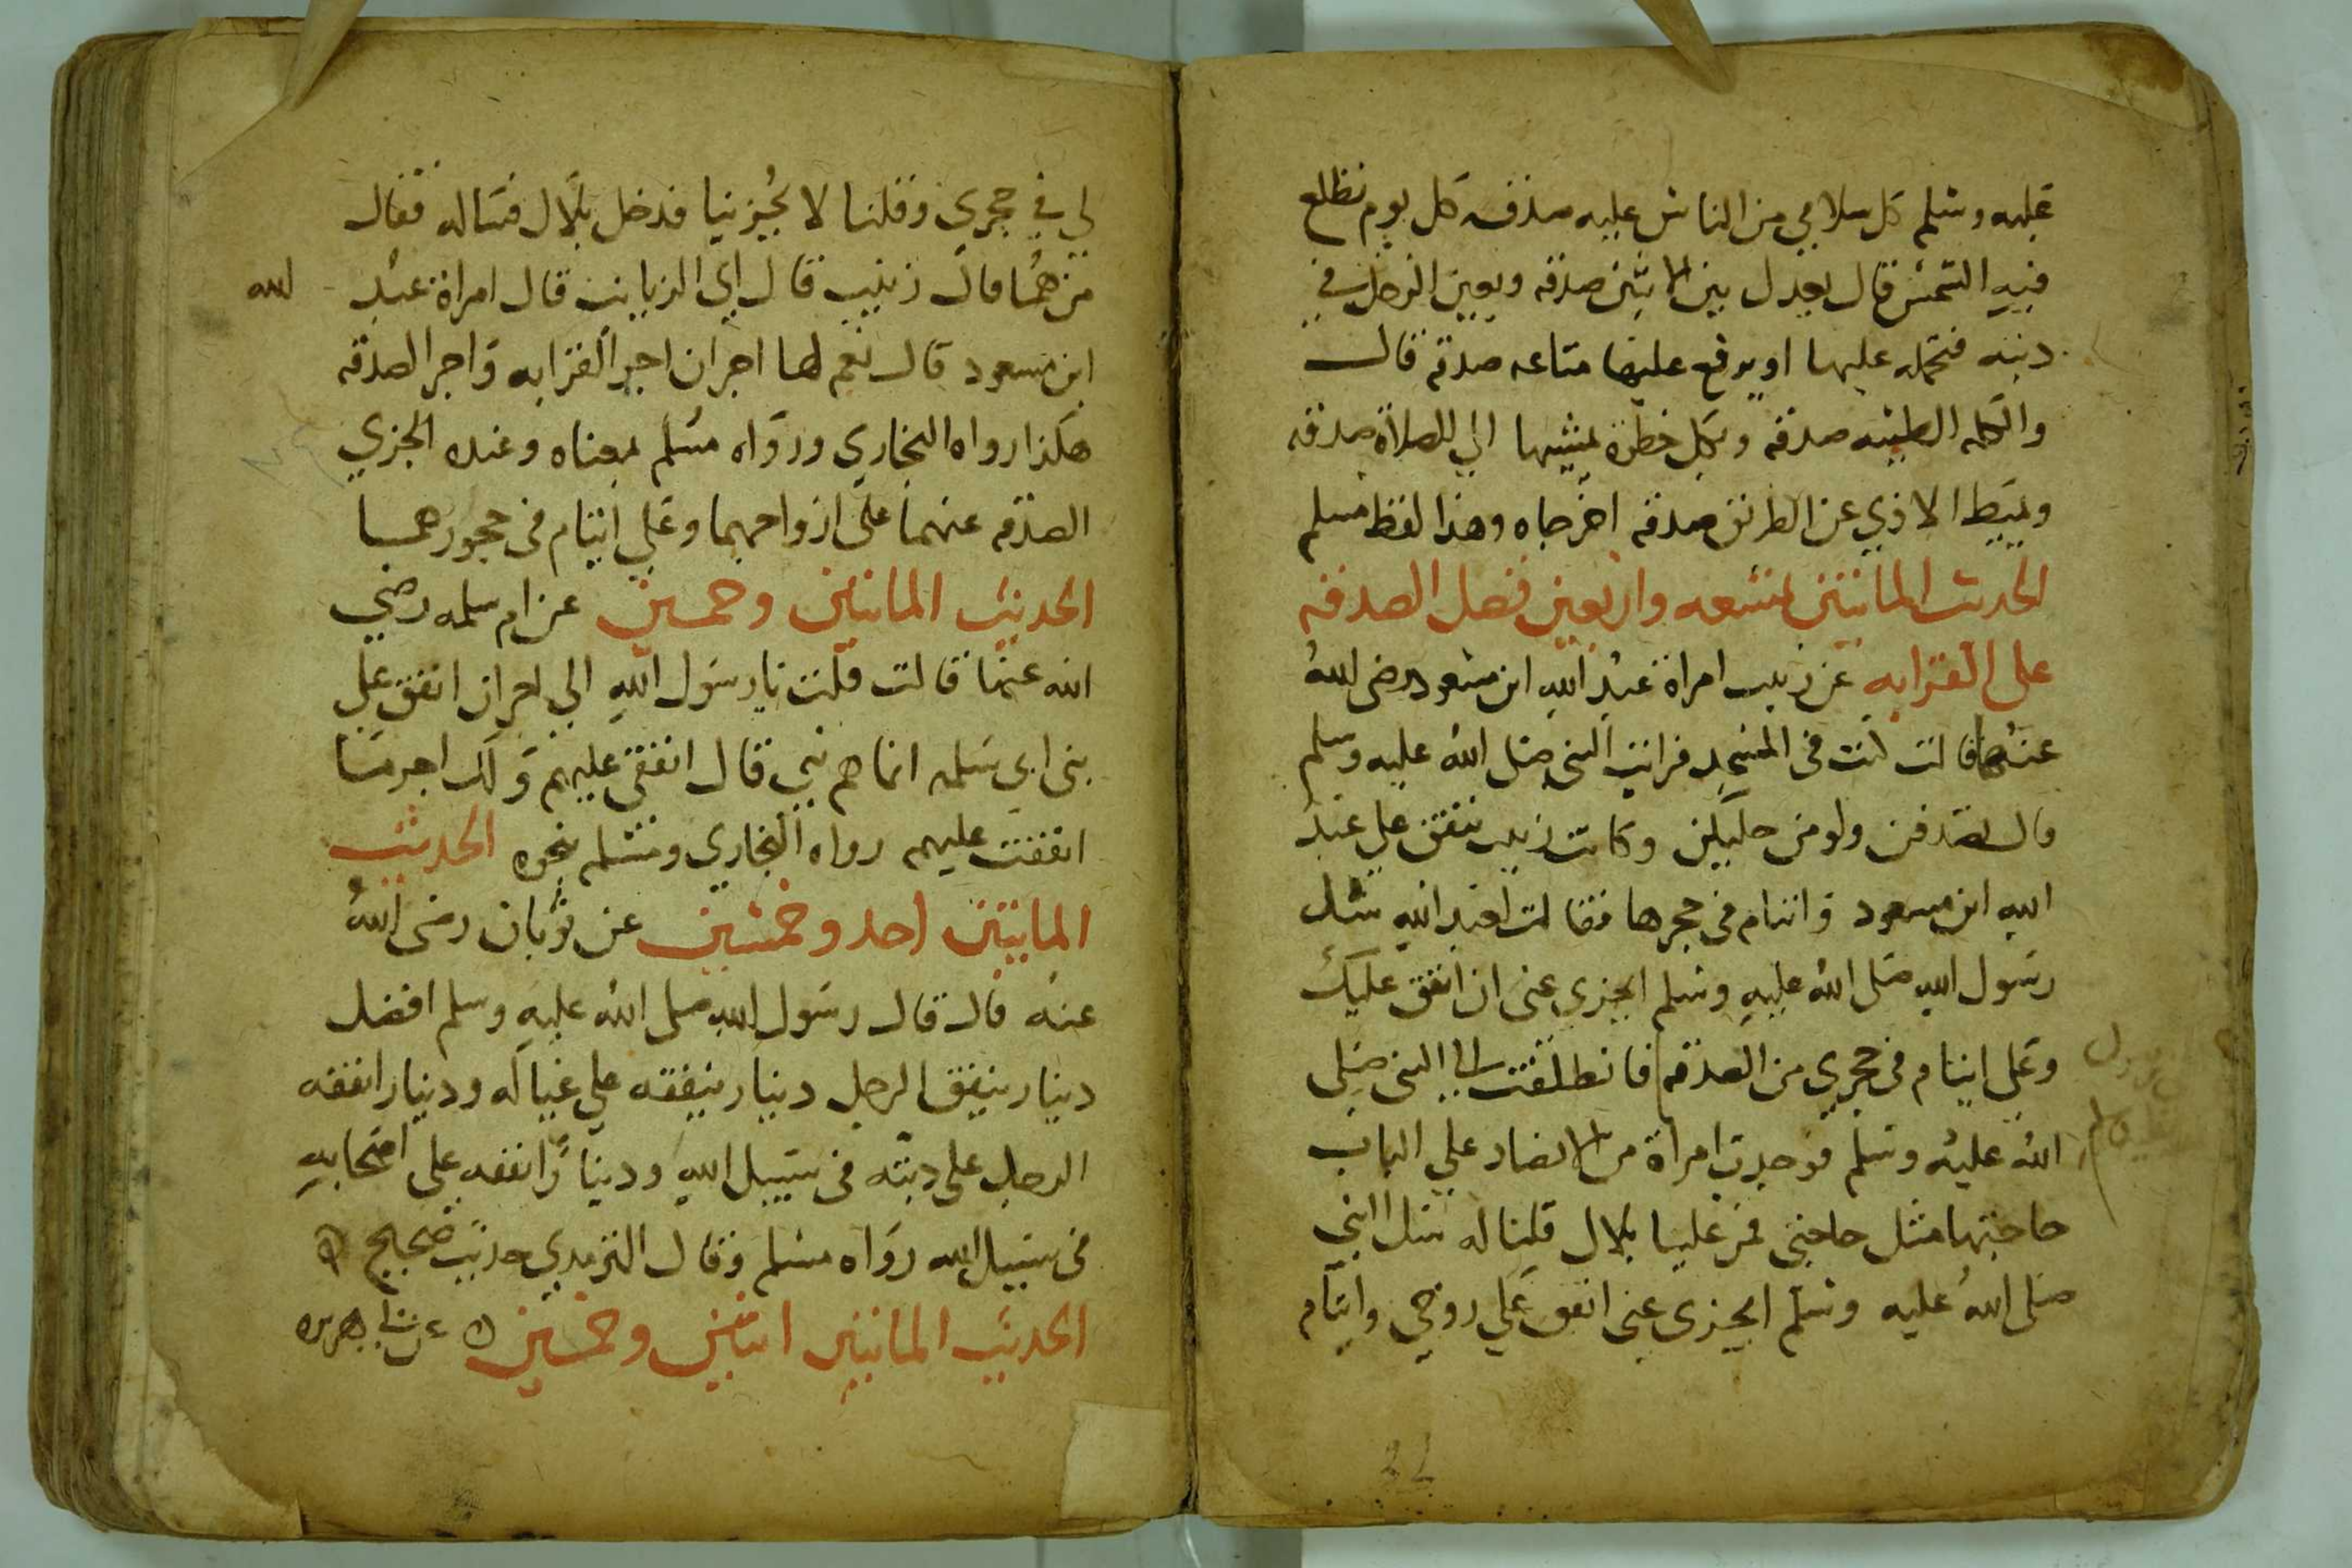 عليه وسلم كل سلامي من الناس عليه صدقه كل يوم تطلع
فيه الشمس قال يعدل بين الاثنين صدقه ويعين الرجل في
دبته فتحمله عليها او يرفع عليها متاعه صدقه قال
والكلمه الطيبه صدقه وبكل خطوة يمشيها الي الصلاة صدقه
ويميط الاذي عن الطريق صدقه اخرجاه وهذا لفظ مسلم
الحديث المائتين تسعه واربعين فضل الصدقه
على القرابه عن زينب امراة عبد الله ابن مسعود رضي الله
عنهما قالت كنت في المسجد فرايت النبي صلى الله عليه وسلم
قال تصدقن ولو من حليكن وكانت زينب تنفق علي عبد
الله ابن مسعود وايتام في حجرها فقالت لعبد الله سل
رسول الله صلى الله عليه وسلم ايجزي عني ان انفق عليك
وعلي ايتام في حجري من الصدقه فانطلقت الى النبي صلى
الله عليه وسلم فوجدت امراة من الانصار علي الباب
حاجتها مثل حاجتي فمر علينا بلال قلنا له سل النبي
صلى الله عليه وسلم ايجزي عني انفق علي زوجي وايتام
لي في حجري وقلنا لا تخبر بنا فدخل بلال فساله فقال
من هما قال زينب قال اي الزيانب قال امراة عبد الله
ابن مسعود قال نعم لها اجران اجر القرابه واجر الصدقه
هكذا رواه البخاري ورواه مسلم بمعناه وعنده اتجزي
الصدقه عنهما على ازواجهما وعلي ايتام في حجورهما
الحديث المائتين وخمسين عن ام سلمه رضي
الله عنها قالت قلت يا رسول الله الي اجر ان انفق علي
بني ابي سلمه انما هم بني قال انفقي عليهم ولك اجر ما
انفقت عليهم رواه البخاري ومسلم بنحوه الحديث
المائتين احد وخمسين عن ثوبان رضى الله
عنه قال قال رسول الله صلى الله عليه وسلم افضل
دينار ينفق الرجل دينار ينفقه علي عياله ودينار انفقه
الرجل على دبته في سبيل الله ودينارا انفقه على اصحابه
في سبيل الله رواه مسلم وقال الترمدي حديث صحيح
الحديث المائتين اثنين وخمسين عن ابي هريره